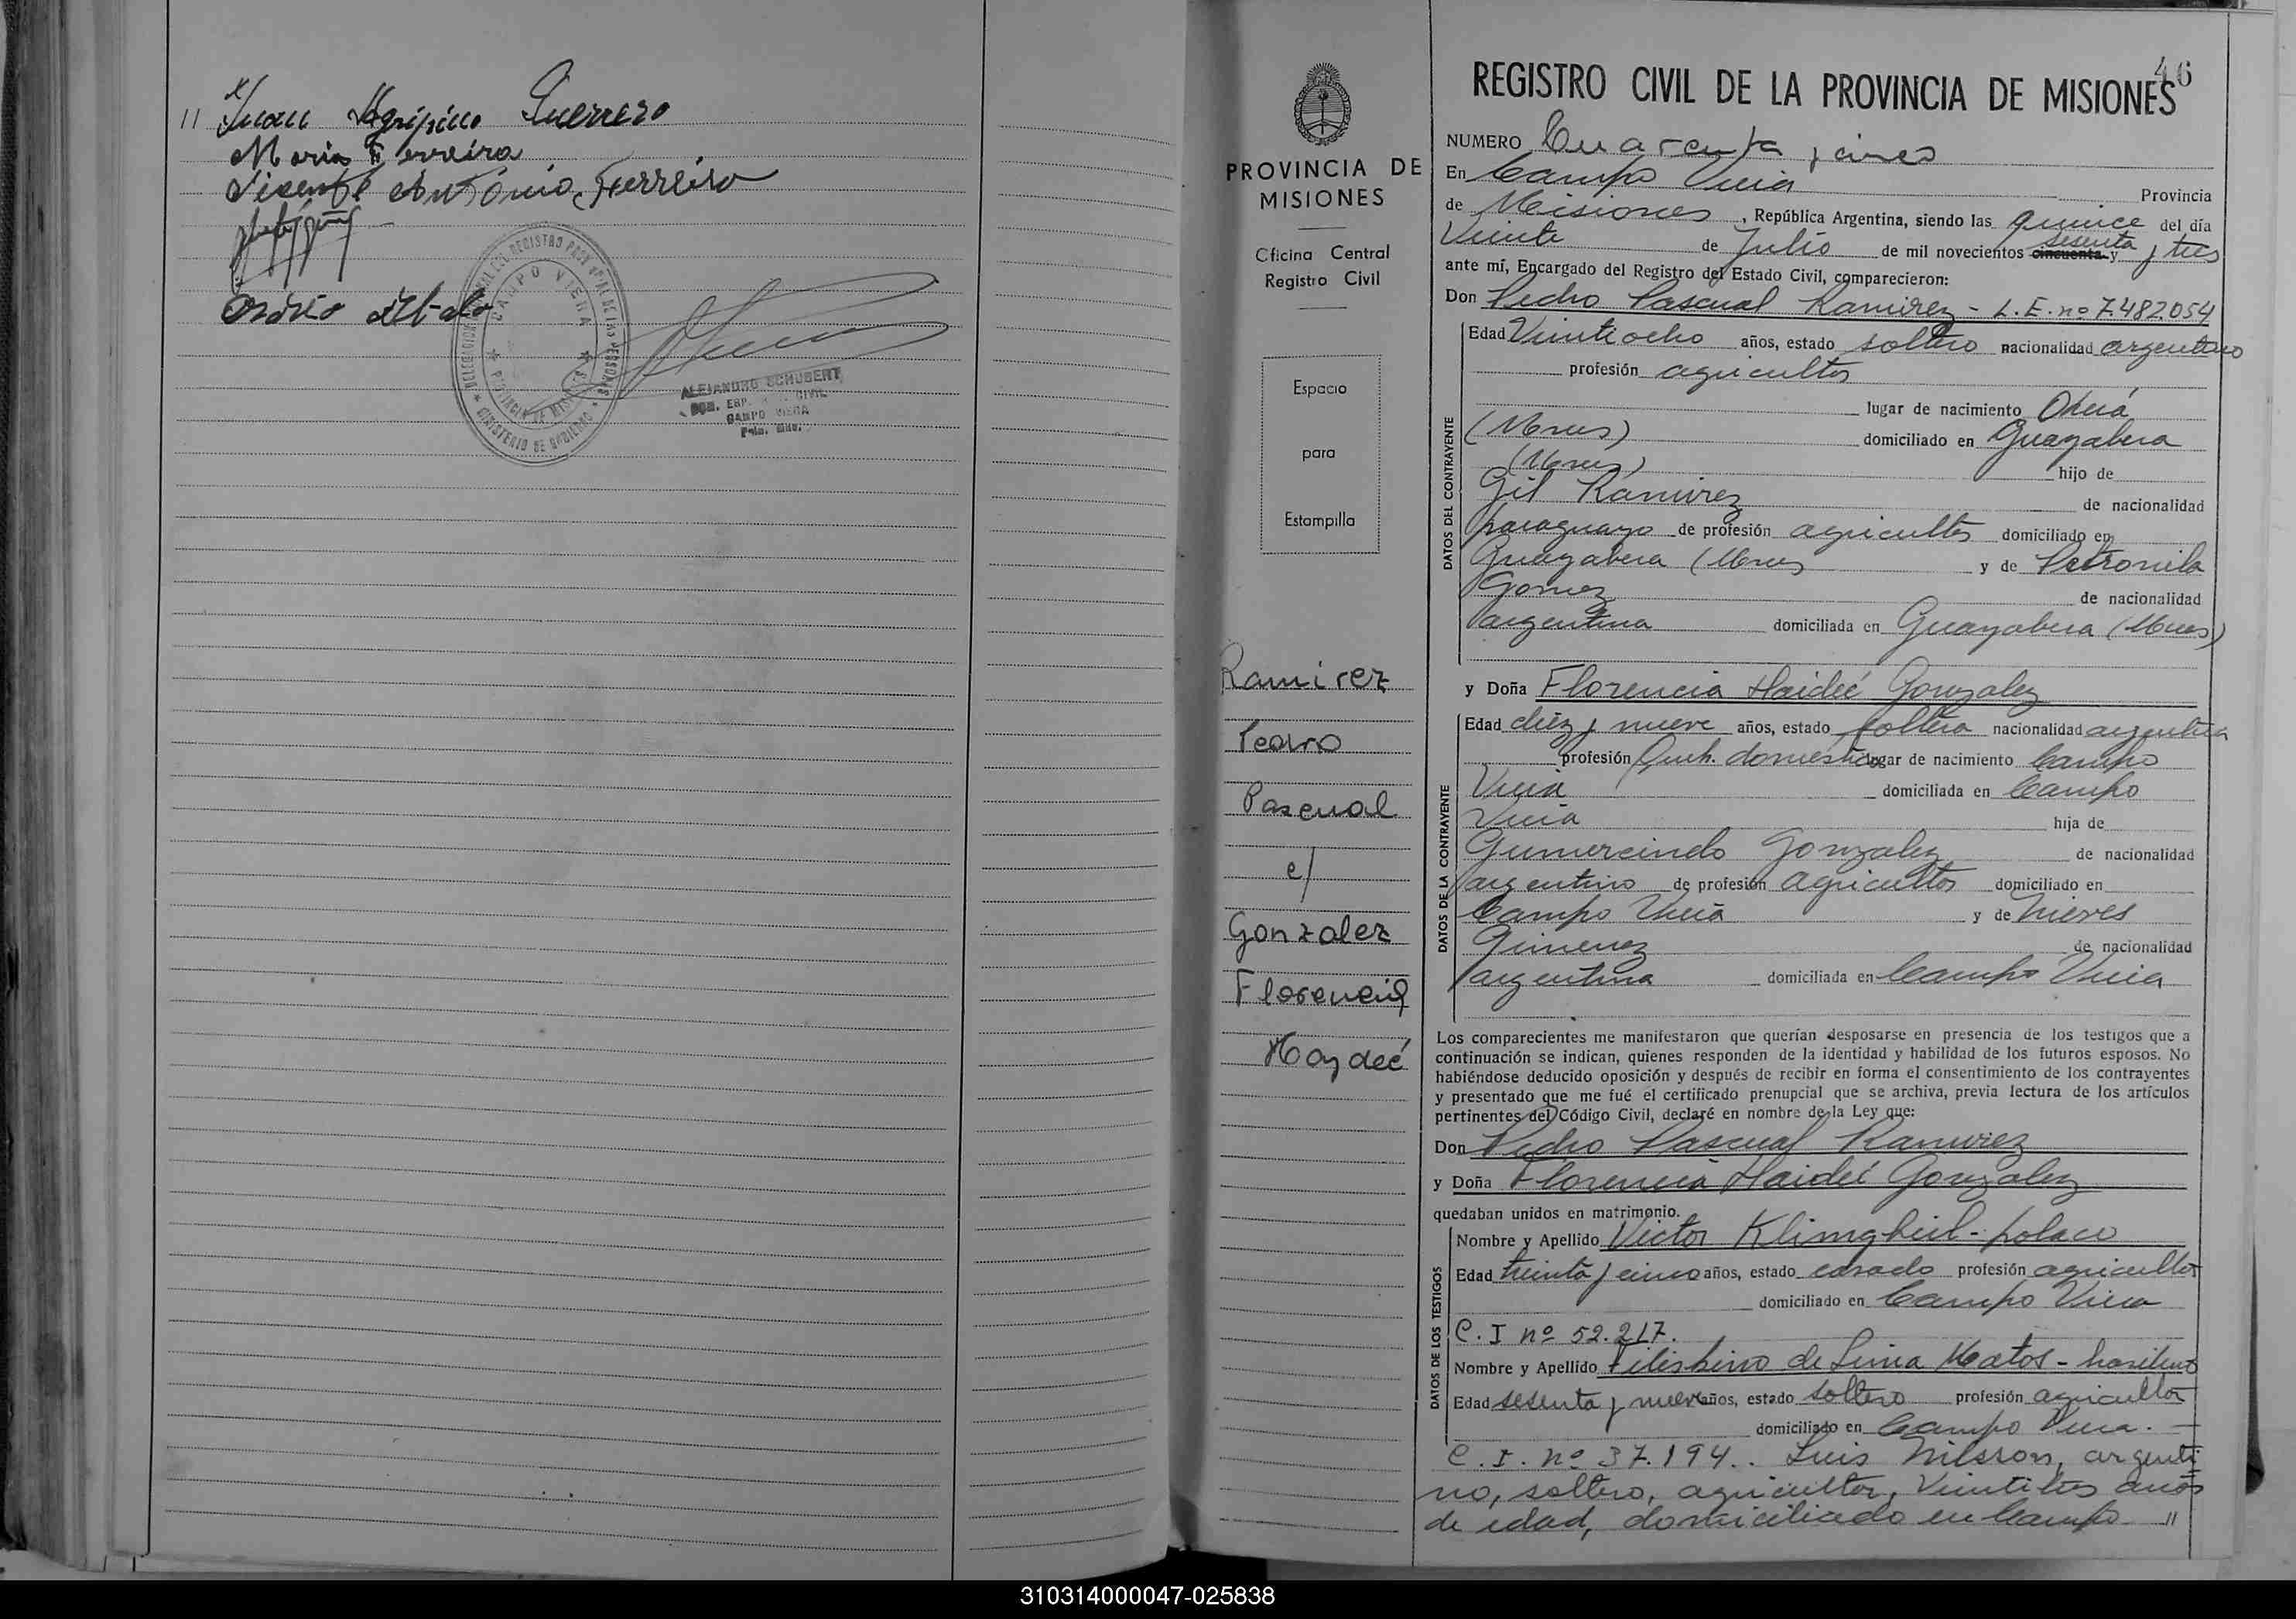 " Juan Agripino Guerrero
Maria Ferreira
Vicente Antonio Ferreira
DELEGACION DEL REGISTRO PROVINCIAL DE LAS PERSONAS
CAMPO VIERA
PROVINCIA DE MISIONES
MINISTERIO DE GOBIERNO
ALEJANDRO SCHUBERT
CIVIL
CAMPO VIERA
46
PROVINCIA DE
MISIONES
Oficina Central
Registro Civil
Espacio
para
Estampilla
Ramirez
Pedro
Pascual
c/
Gonzalez
Florencia
Haydeé
REGISTRO CIVIL DE LA PROVINCIA DE MISIONES
NUMERO Cuarenta y cinco
En Campo Viera Provincia
de Misiones, República Argentina, siendo las quince del día
Veinte de Julio de mil novecientos cincuenta y sesenta y tres
ante mí, Encargado del Registro del Estado Civil, comparecieron:
Don Pedro Pascual Ramirez - L.E. nº 7.482.054
DATOS DEL CONTRAYENTE
Edad Veintiocho años, estado soltero nacionalidad argentino
profesión agricultor
lugar de nacimiento Oberá
(Mnes) domiciliado en Guayabera
(Mnes) hijo de
Gil Ramirez de nacionalidad
paraguayo de profesión agricultor domiciliado en
Guayabera (Mnes) y de Petronila
Gomez de nacionalidad
argentina domiciliada en Guayabera (Mnes)
y Doña Florencia Haideé Gonzalez
DATOS DE LA CONTRAYENTE
Edad diez y nueve años, estado soltera nacionalidad argentina
profesión Queh. domésticos lugar de nacimiento Campo
Viera domiciliada en Campo
Viera hija de
Gumercindo Gonzalez de nacionalidad
argentino de profesión agricultor domiciliado en
Campo Viera y de Nieves
Gimenez de nacionalidad
argentina domiciliada en Campo Viera
Los comparecientes me manifestaron que querían desposarse en presencia de los testigos que a
continuación se indican, quienes responden de la identidad y habilidad de los futuros esposos. No
habiéndose deducido oposición y después de recibir en forma el consentimiento de los contrayentes
y presentado que me fué el certificado prenupcial que se archiva, previa lectura de los artículos
pertinentes del Código Civil, declaré en nombre de la Ley que:
Don Pedro Pascual Ramirez
y Doña Florencia Haideé Gonzalez
quedaban unidos en matrimonio.
DATOS DE LOS TESTIGOS
Nombre y Apellido Victor - polaco
Edad treinta y cinco años, estado casado profesión agricultor
domiciliado en Campo Viera
C. I nº 52.217.
Nombre y Apellido de Lima Matos - brasilero
Edad sesenta y nueve años, estado soltero profesión agricultor
domiciliado en Campo Viera. —
C. I. nº 37.194.. Luis Nilsson, argenti-
no, soltero, agricultor, Veintitres años
de edad, domiciliado en Campo "
310314000047-025838